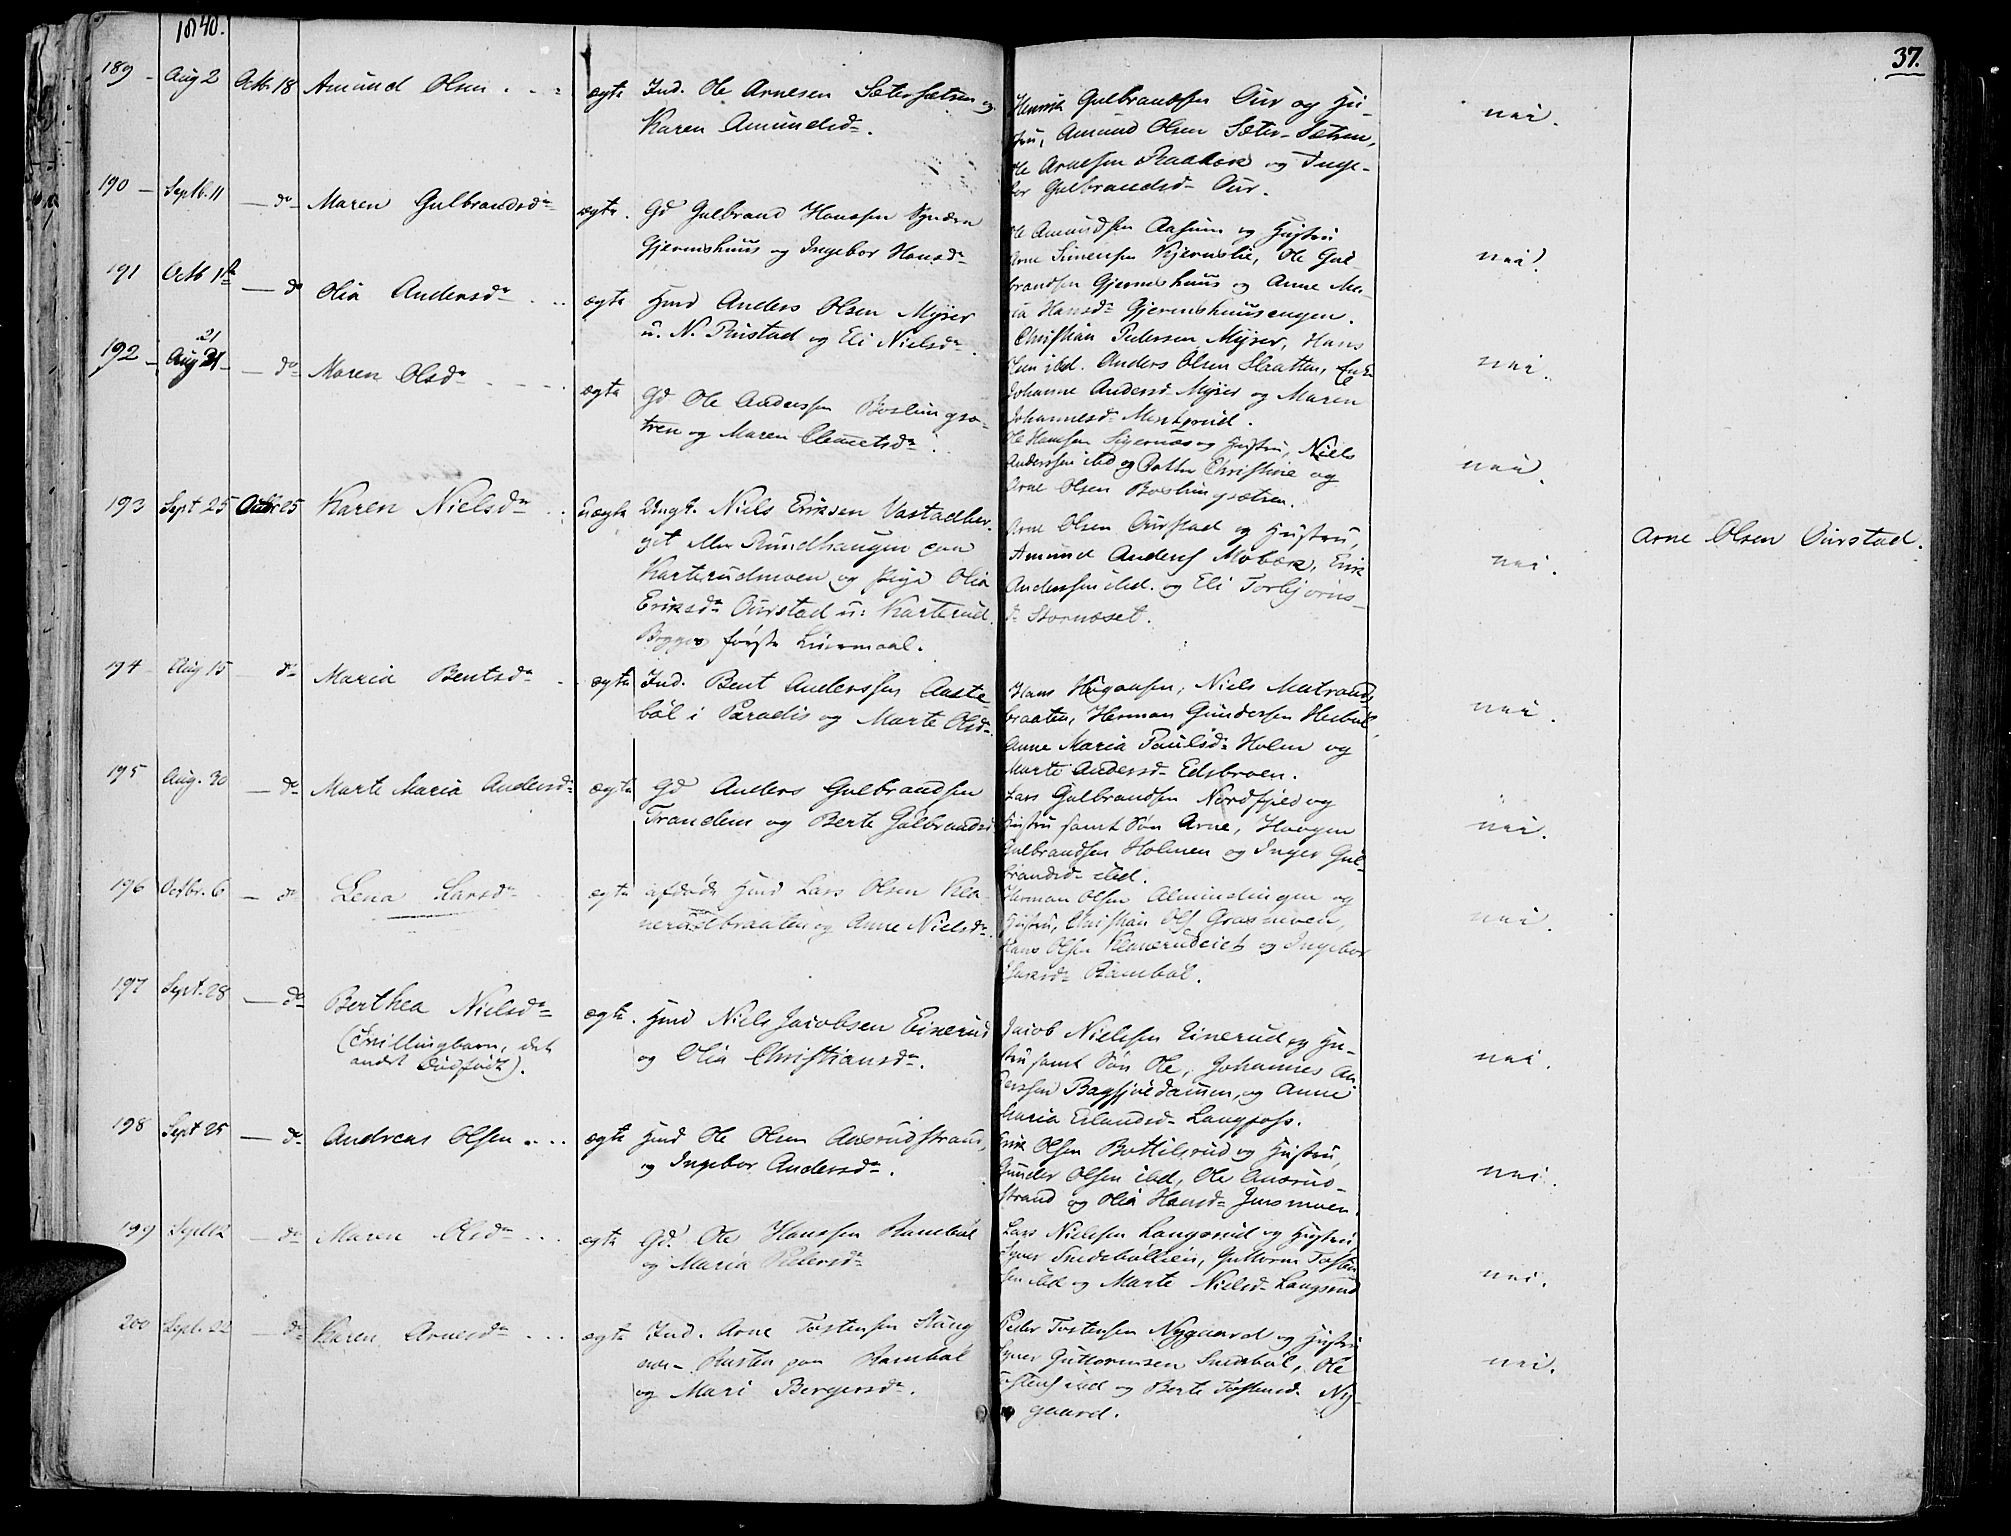 1840.
37.
189 - Aug 2 Octb. 18 Amund Olsen . . - ægte Ind. Ole Arnesen Sætersætren og
Karen Amundsdr.
Henrik Gulbrandsen Our og Hu-
stru, Amund Olsen Sæter-Sætren,
Ole Arnesen Raabæk og Inge-
bor Gulbrandsdr Our.
nei.
190 - Septb. 11 - do - Maren Gulbrandsdr ægte. Gd Gulbrand Hansen
Gjermshuus og Ingebor Hansdr
Ole Amundsen Aasum og Hustru
Arne Simensen Kjernslie, Ole Gul-
brandsen Gjermshuus og Anne Ma-
ria Hansdr Gjermshuusengen.
nei.
191 Octb 1st - do Olia Andersdr . . . ægte Hmd Anders Olsen Myrer
u. N. Rustad og Eli Nielsdr.
Christian Pedersen Myrer, Hans
Olsen ibd. Anders Olsen Slaatten, Enke
Johanne Andersdr Myrer og Maren
Johannesdr
nei.
192 - Aug 21 - do Maren Olsdr - - - . ægte Gd Ole Anderssen Boslungsæ-
tren og Maren Clemetsdr.
21
Ole Hansen Sigernæs og Hustru, Niels
Anderssen ibd og Datter Christine og
Arne Olsen Boslungsætren.
nei.
193 Sept 25 Octbr 25 Karen Nielsdr . . uægte Ungk. Niels Eriksen Vastadber-
get eller Rundhaugen paa
Karterudmoen og Pige Olia
Eriksdr Ourstad u: Karterud.
Begges første Leiermaal.
Arne Olsen Ourstad og Hustru,
Amund Anders Mobæk, Erik
Anderssen ibid. og Eli Torbjørns-
dr Stornæset.
nei.
Arne Olsen Ourstad.
194 - Aug 15 - do Maria Bentsdr . . ægte Ind. Bent Anderssen Aaste-
böl i Paradis og Marte Olsdr.
Hans Haagensen, Niels Matrands-
braaten, Herman Gundersen Huböl,
Anne Maria Paulsdr Holm og
Marte Andersdr Edsbroen.
nei.
195 Aug. 30 - do Marte Maria Andersdr ægte Gd Anders Gulbrandsen
Trandem og Berte Gulbrandsd
Lars Gulbrandsen Nordfjeld og
Hustru samt Søn Arne, Haagen
Gulbrandsen Holmen og Inger Gul-
brandsdr ibid.
nei.
196 Octbr. 6 - do Lena Larsdr . . . ægte afdöde Hmd Lars Olsen Kla-
nerudbraaten og Anne Nielsdr.
Herman Olsen Almindingen og
Hustru, Christian Ols. Grasmoen,
Hans Olsen Klanerudeiet og Ingebor
Larsdr Ramböl.
nei.
197 Sept. 28 - do Berthea Nielsdr ægte. Hmd Niels Jacobsen Einerud
(Tvillingbarn, det og Olia Christiansdr.
andet Dødfødt).
Jacob Nielsen Einerud og Hu-
stru samt Søn Ole, Johannes An-
derssen Bagsjödammen, og Anne
Maria Erlandsdr Langfoss.
nei.
198 Sept 25 - do Andreas Olsen . . . ægte Hmd Ole Olsen Aaserudstrand,
og Ingebor Andersdr.
Erik Olsen Bottilsrud og Hustru,
Gunder Olsen ibd, Ole Aaserud-
strand og Olia Hansdr
nei.
199 Sept 12 - do Maren Olsdr . . . ægte Gd. Ole Hanssen Ramböl
og Maria Pedersdr
Lars Nielsen Langerud og Hustru
Syver Snesböllien, Guttorm Tosten-
sen ibd og Marte Nielsdr Langerud
nei.
200 Sept. 22 - do Karen Arnesdr . . . ægte Ind. Arne Tostensen
paa Ramböl
og Mari Bergersdr.
Peder Tostensen Nygaard og Hustru
Syver Guttormsen Snesböl, Ole
Tostens. ibd og Berte Tostensdr Ny-
gaard.
nei.